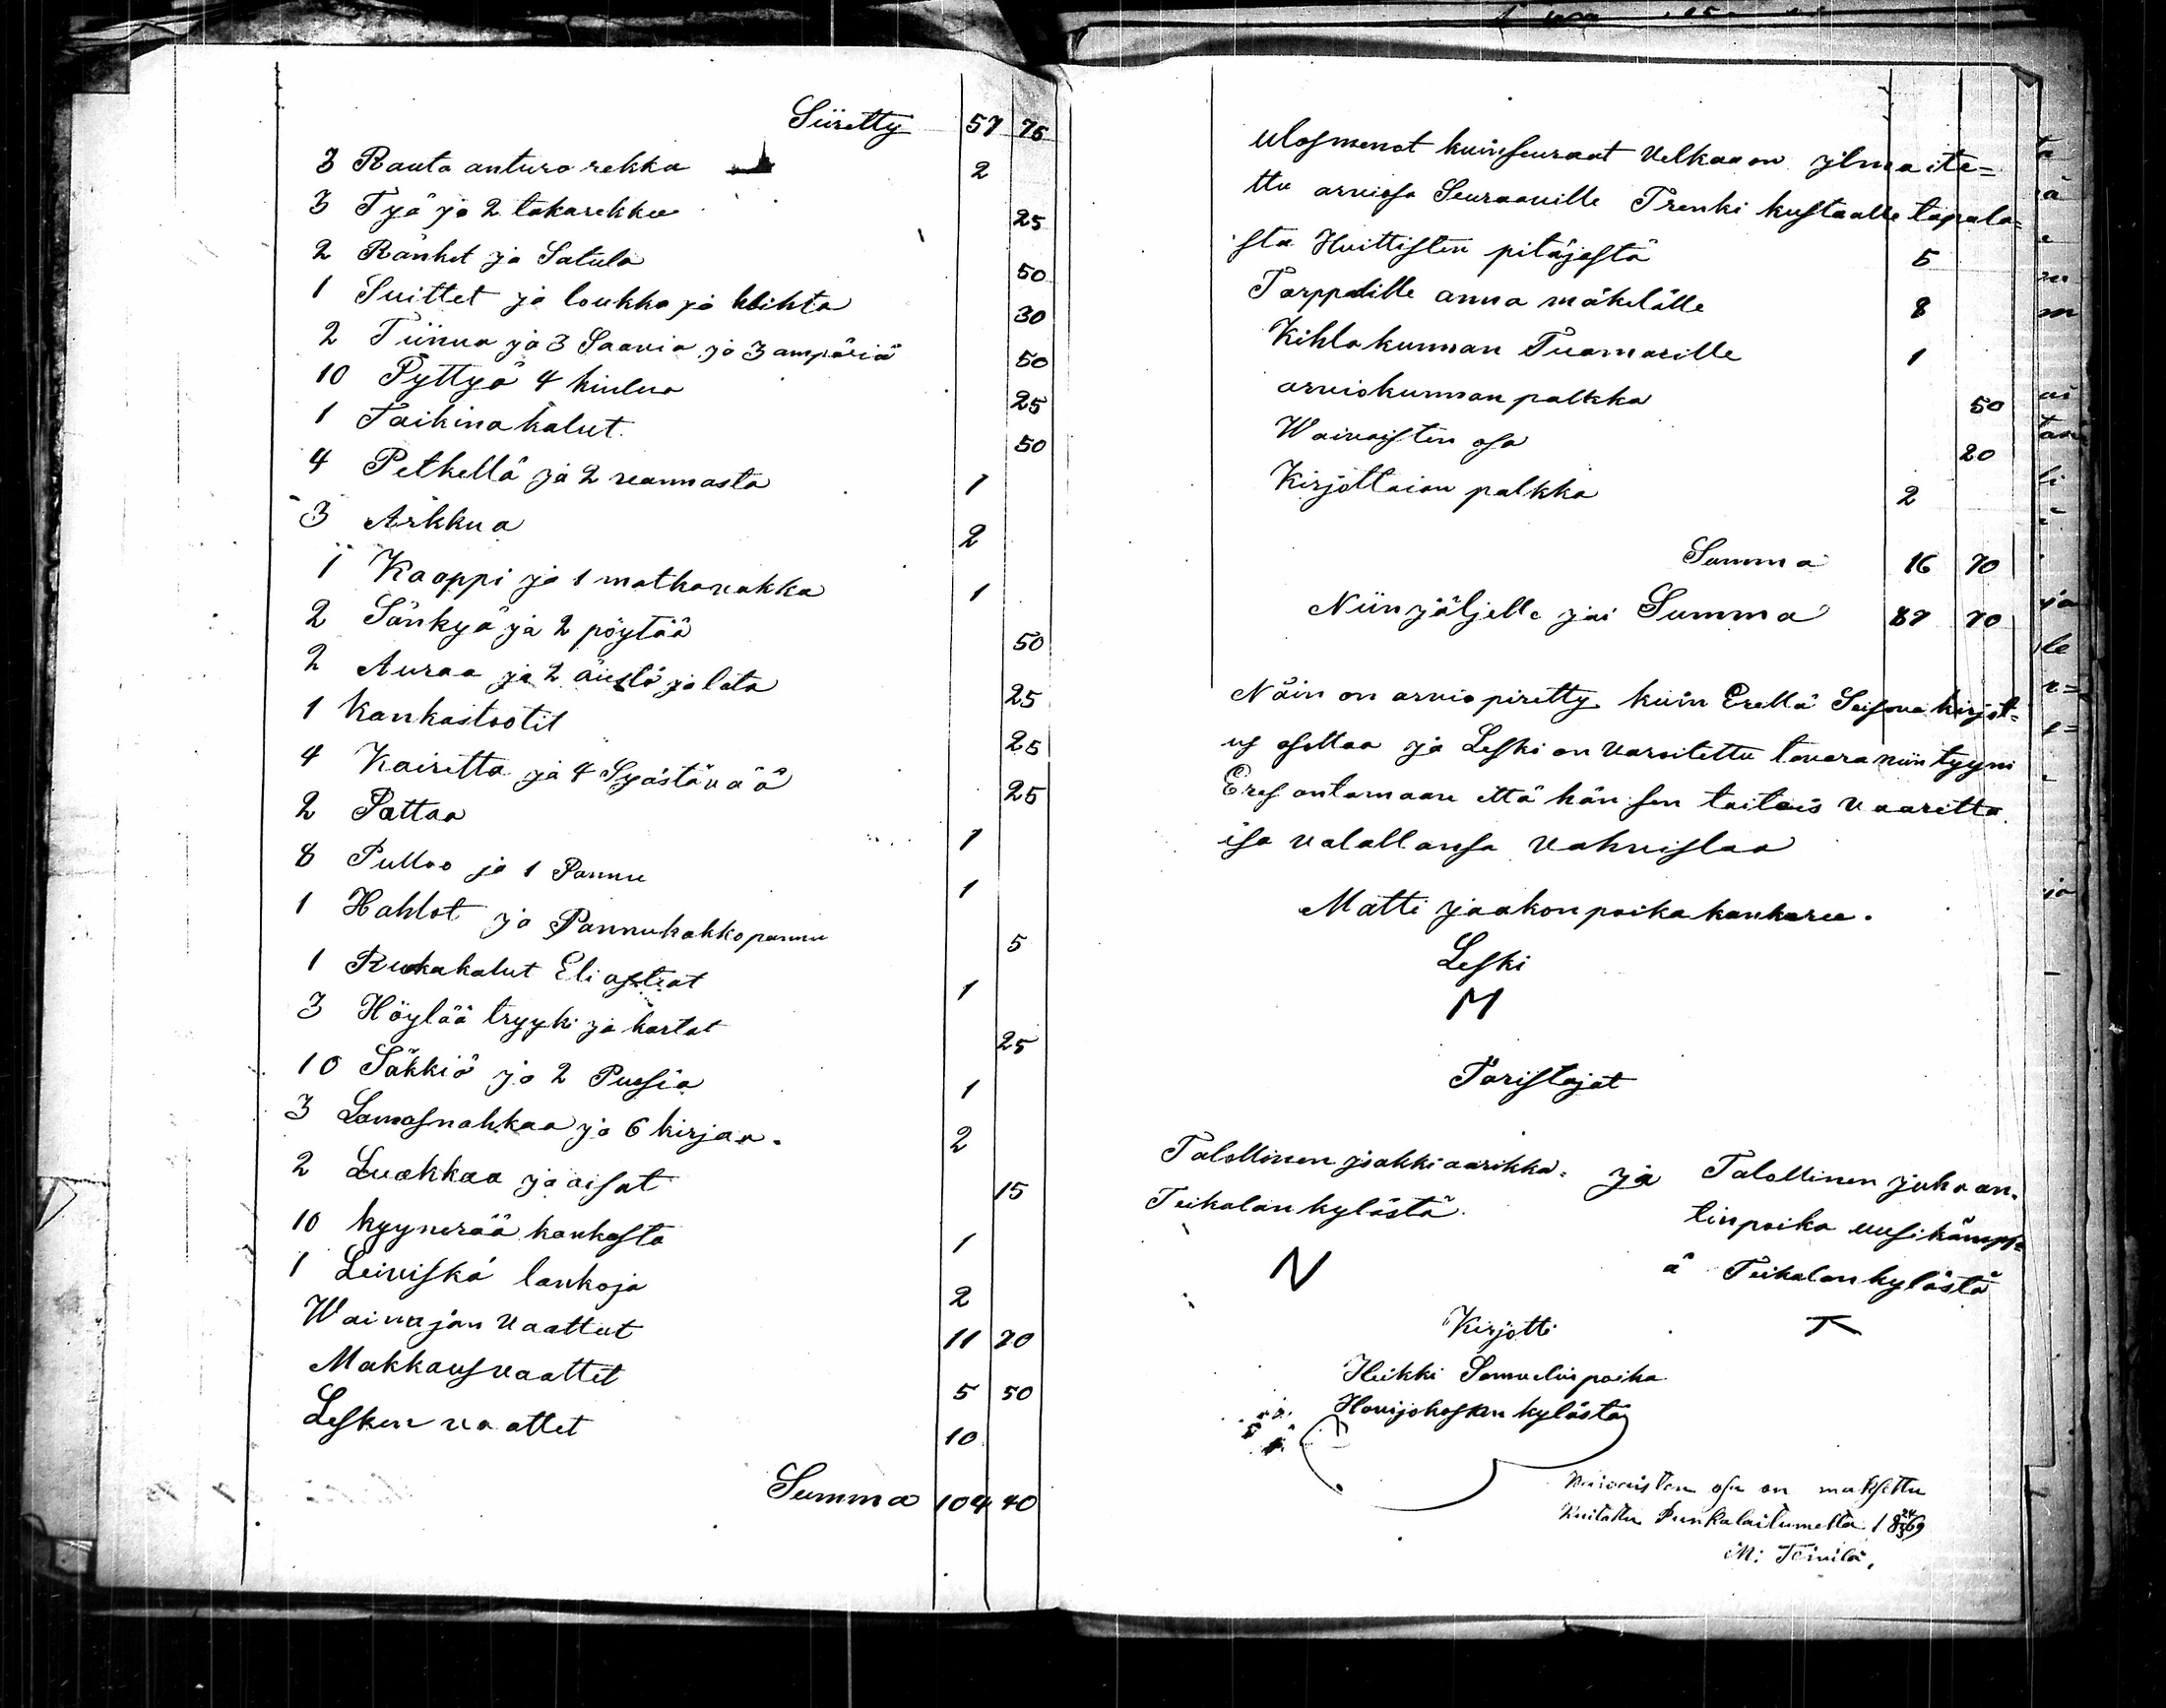 Siiretty 57 75
3 Rauta anturo rekka 2
3 Työ ja 2 takarekkee 25
2 Ränket ja Satula 50
1 Suittet ja loukko ja hihta 30
2 Tiinua ja 3 Saavia ja 3 ampäriä 50
10 Pyttyä 4 kiulua 25
1 Taikina kalut 50
4 Petkellä ja 2 reannasta 1
3 Arkkua 2
1 Kaappi ja 1 matkavakka 1
2 Sänkyä ja 2 pöytää 50
2 Auraa ja 2 äiestä ja lata 25
1 Kankastootit 25
4 Kairetta ja 4 Syästävää 25
2 Pattaa 1
8 Pulloo ja 1 Pannu 1
1 Hahlot ja Pannukakko pannu 5
1 Ruokakalut Eli astiat 1
3 Höylää tryyki ja kartat 25
10 Säkkiä ja 2 Pussia 1
3 Lamasnahkaa ja 6 kirjaa. 2
2 Luokkaa ja aisat 15
10 kyynerää kankasta 1
1 Leiviskä lankoja 2
Wainajan vaattut 11 70
Makkausvaattet 5 50
Lesken vaattet 10
Summa 104 40
ulosmenot kuin seuraat Velkaa on ylmaite=
ttu arvioisa Seuraaville Trenki kustaalle tapala=
sta Huittisten pitäjästä 5
Torpparille anna mäkelälle 8
Kihlakunnan Tuomarille 1
arviokunnan palkka 50
Waivaisten osa 20
Kirjottaian palkka 2
Summa 16 70
Niin jäljelle jäi Summa 87 70
Näin on arvio piretty kuin Erellä Seisova kirjot=
us osottaa ja Leski on varoitettu tavara niin tyyni
Eres antamaan että hän sen taitais vaaritta
isa valallansa vahvistaa
Matti jaakon poika kankare.
Leski
M
Toristajat
Talollinen jsakki aarikka. ja Talollinen juha an.
Teikalan kylästä. tinpoika uusi kämpp=
ä Teikalan kylästä
N
Kirjotti
Heikki Samuelin poika
Honnjokosken kylästä
Waivaisten osa on maksettu
Kuitattu Punkalaitumella 1869
M: Teivilä,